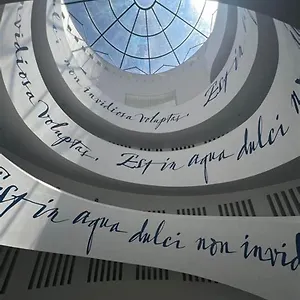 non invidiosa voluptas. Est
invidiosa voluptas. Est in aqua dulci
Est in aqua dulci non invid